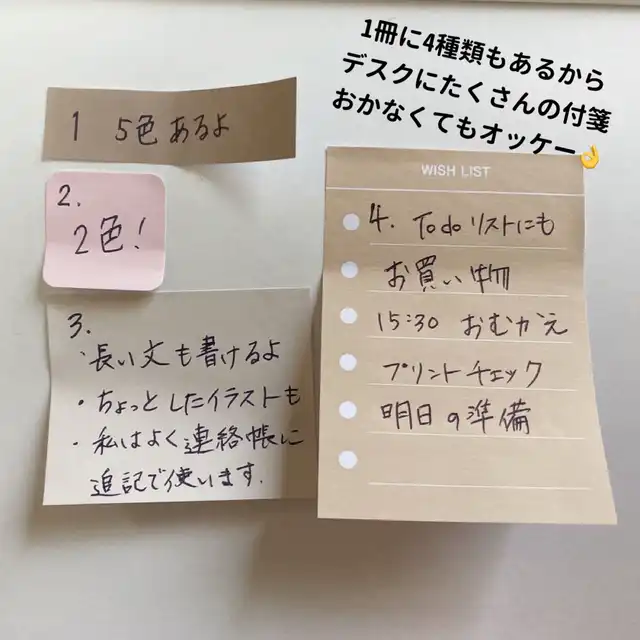 1冊に4種類もあるから
デスクにたくさんの付箋
おかなくてもオッケー👌
1 5色あるよ
2.
2色!
3.
・長い文も書けるよ
・ちょっとしたイラストも
・私はよく連絡帳に
追記で使います.
WISH LIST
4. Todoリストにも
お買い物
15:30 おむかえ
プリントチェック
明日の準備